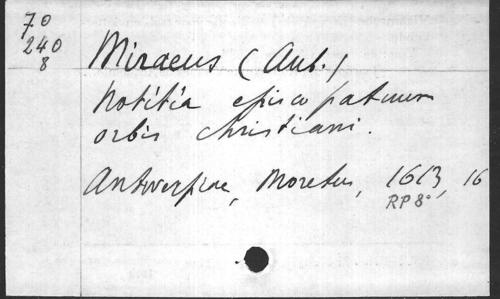 70
240
8
Miraeus (Aub.)
Notitia episcopatuum
orbis christiani.
Antverpiae, Moretus, 1613, 16
RP 8°